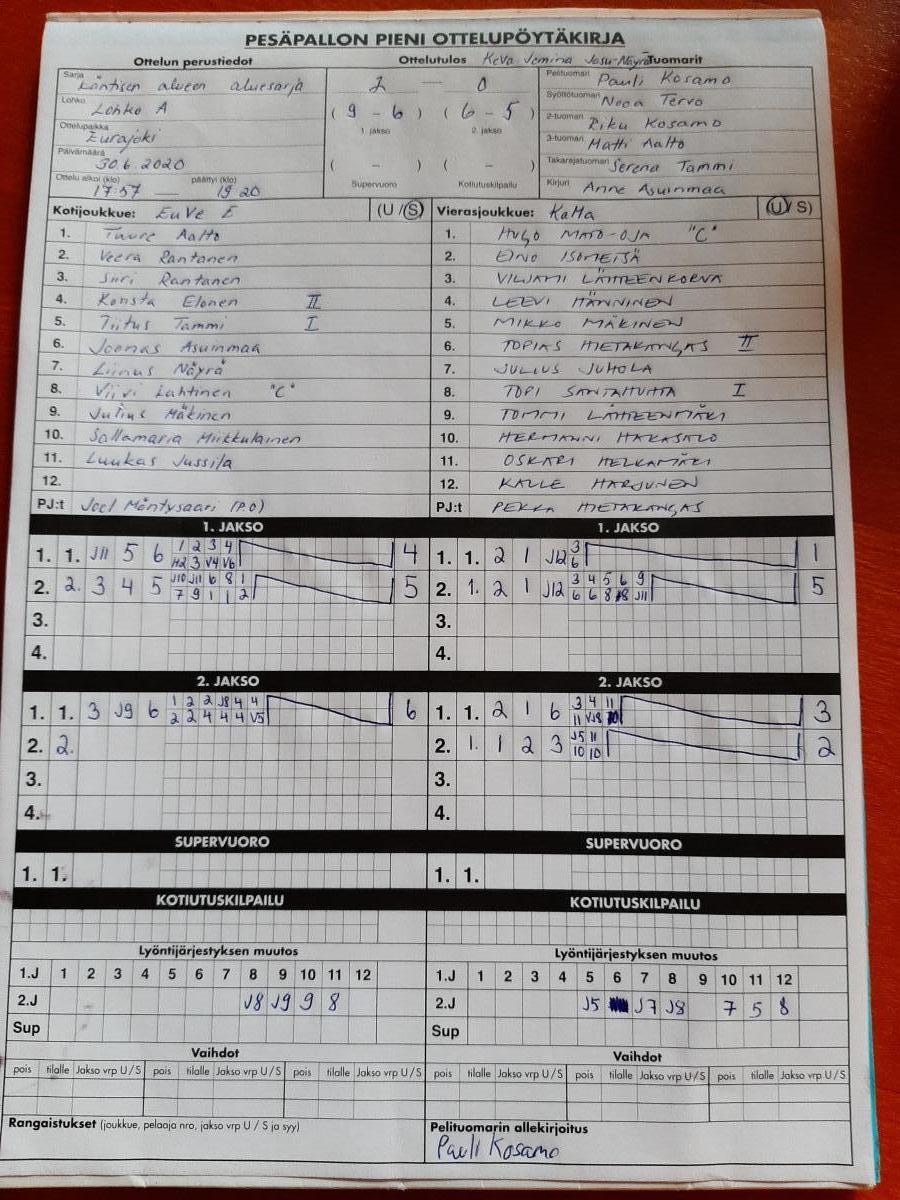 PESÄPALLON PIENI OTTELUPÖYTÄKIRJA
Ottelun perustiedot
Ottelutulos Keva Jemina Jasu-Näyrä
Tuomarit
Sarja Läntisen alueen aluesarja
Lohko Lohko A
Ottelupaikka Eurajoki
Päivämäärä 30.6.2020
Ottelu alkoi (klo) 17:57 — päättyi (klo) 19 20
2 — 0
( 9 - 6 ) ( 6 - 5 )
1. jakso 2. jakso
( - ) ( - )
Supervuoro Kotiutuskilpailu
Pelituomari Pauli Kosamo
Syöttötuomari Nooa Tervo
2-tuomari Riku Kosamo
3-tuomari Matti Aalto
Takarajatuomari Serena Tammi
Kirjuri Anne Asuinmaa
Kotijoukkue: EuVe E (U / S)
1. Tuure Aalto
2. Veera Rantanen
3. Siiri Rantanen
4. Konsta Elonen II
5. Tiitus Tammi I
6. Joonas Asuinmaa
7. Liinus Näyrä
8. Viivi Lahtinen "C"
9. Julius Mäkinen
10. Sallamaria Miikkulainen
11. Luukas Jussila
12.
PJ:t Joel Mäntysaari (P.O)
Vierasjoukkue: KaMa (U / S)
1. HUGO MATO-OJA "C"
2. EINO ISOMETSÄ
3. VILJAMI LÄHTEENKORVA
4. LEEVI HÄNNINEN
5. MIKKO MÄKINEN
6. TOPIAS HIETAKANGAS II
7. JULIUS JUHOLA
8. TOPI SANTAHUHTA I
9. TOMMI LÄHTEENMÄKI
10. HERMANNI HAKASALO
11. OSKARI HELKAMÄKI
12. KALLE HARJUNEN
PJ:t PEKKA HIETAKANGAS
1. JAKSO
1. 1. J11 5 6 1 2 3 4 4
H2 3 V4 V6
2. 2. 3 4 5 J10 J11 6 8 1 5
7 9 1 1 2
3.
4.
1. JAKSO
1. 1. 2 1 J12 3 1
6
2. 1. 2 1 J12 3 4 5 6 9 5
6 6 8 J11
3.
4.
2. JAKSO
1. 1. 3 J9 6 1 2 2 J8 4 4 6
2 2 4 4 4 V5
2. 2.
3.
4.
2. JAKSO
1. 1. 2 1 6 3 4 11 3
11 VJ8 10
2. 1. 1 2 3 J5 11 2
10 10
3.
4.
SUPERVUORO
1. 1.
SUPERVUORO
1. 1.
KOTIUTUSKILPAILU
KOTIUTUSKILPAILU
Lyöntijärjestyksen muutos
1.J 1 2 3 4 5 6 7 8 9 10 11 12
2.J J8 J9 9 8
Sup
Lyöntijärjestyksen muutos
1.J 1 2 3 4 5 6 7 8 9 10 11 12
2.J J5 J7 J8 7 5 8
Sup
Vaihdot
pois tilalle Jakso vrp U / S pois tilalle Jakso vrp U / S pois tilalle Jakso vrp U / S
Vaihdot
pois tilalle Jakso vrp U / S pois tilalle Jakso vrp U / S pois tilalle Jakso vrp U / S
Rangaistukset (joukkue, pelaaja nro, jakso vrp U / S ja syy)
Pelituomarin allekirjoitus
Pauli Kosamo